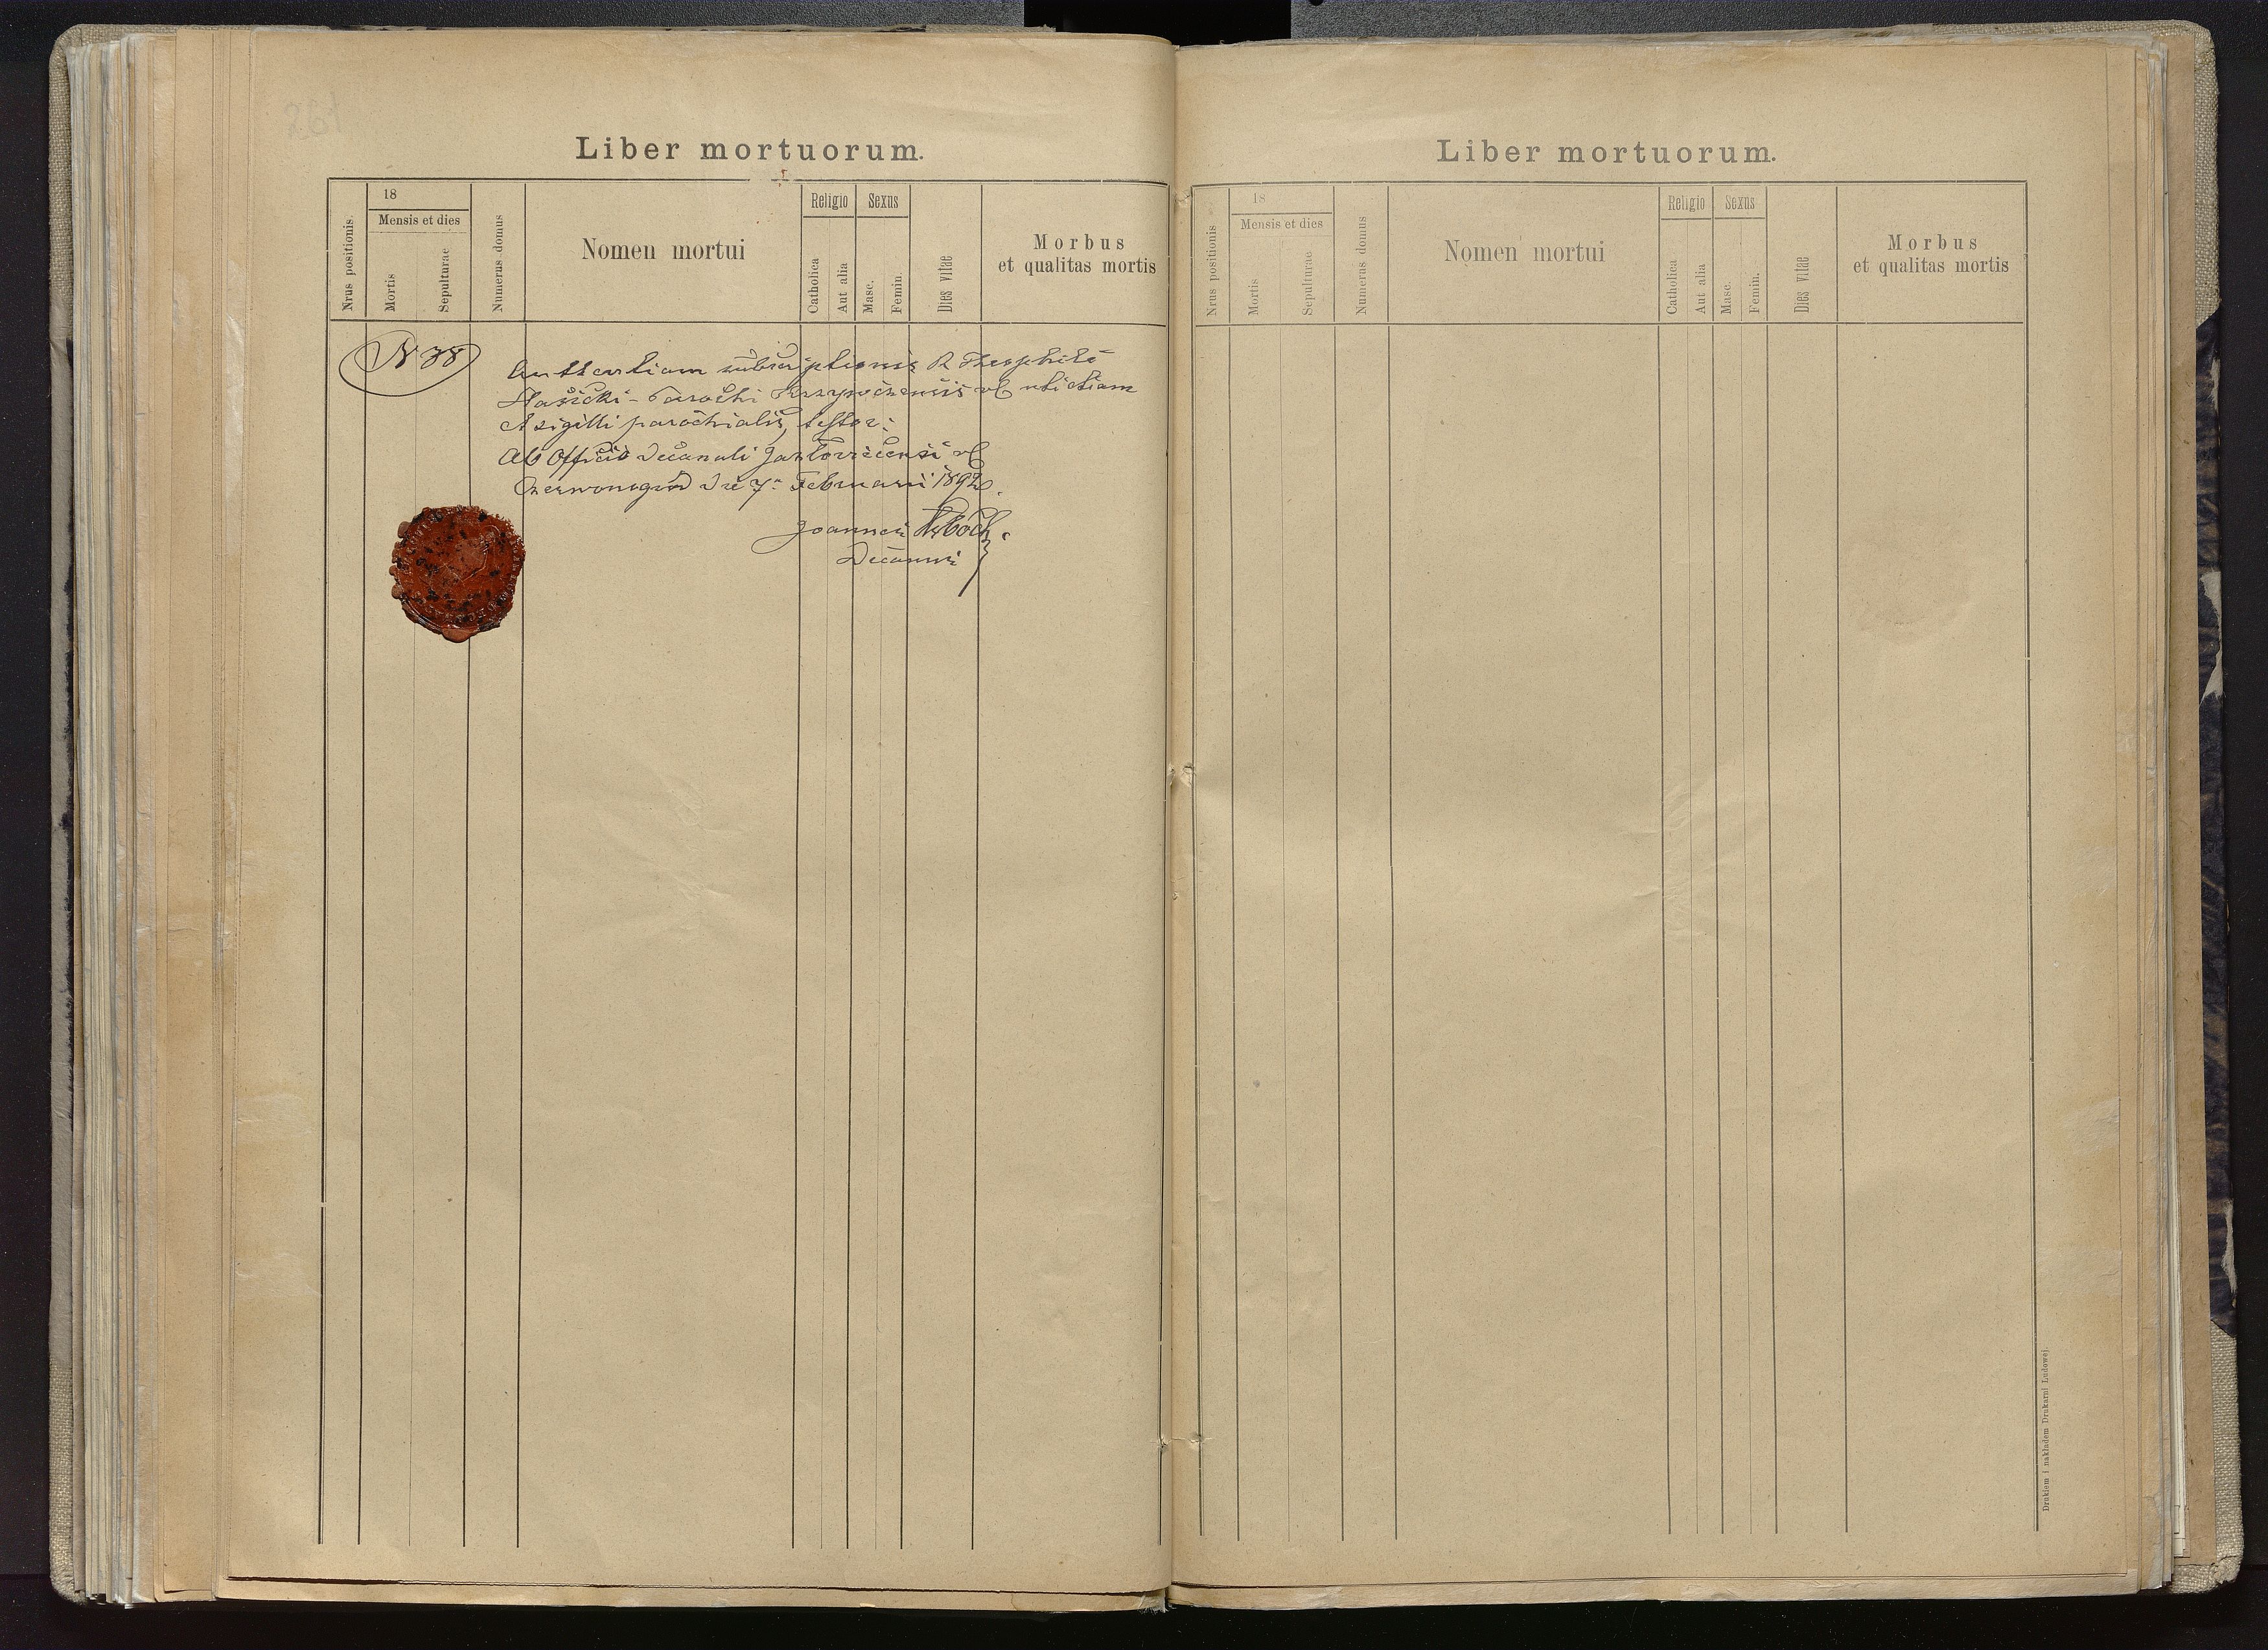 261
Liber mortuorum.
Nrus positionis.
18
Mensis et dies
Mortis
Sepulturae
Numerus domus
Nomen mortui
Religio
Catholica
Aut alia
Sexus
Masc.
Femin.
Dies vitae
Morbus
et qualitas mortis
N 38
subscriptionis R Theophili
Parochi
sigilli parochialis, testor:
Ab Officio Decanali
Czerwonogrod die 7. Februarii 1892.
Joannes
Decanus
Liber mortuorum.
Nrus positionis
18
Mensis et dies
Mortis
Sepulturae
Numerus domus
Nomen mortui
Religio
Catholica
Aut alia
Sexus
Masc.
Femin.
Dies vitae
Morbus
et qualitas mortis
Drukiem i nakładem Drukarni Ludowej.